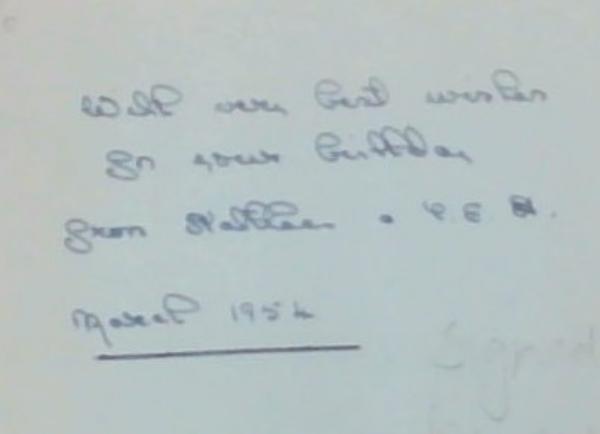 With very best wishes
for your birthday
from Kathleen
March 1954
Signed